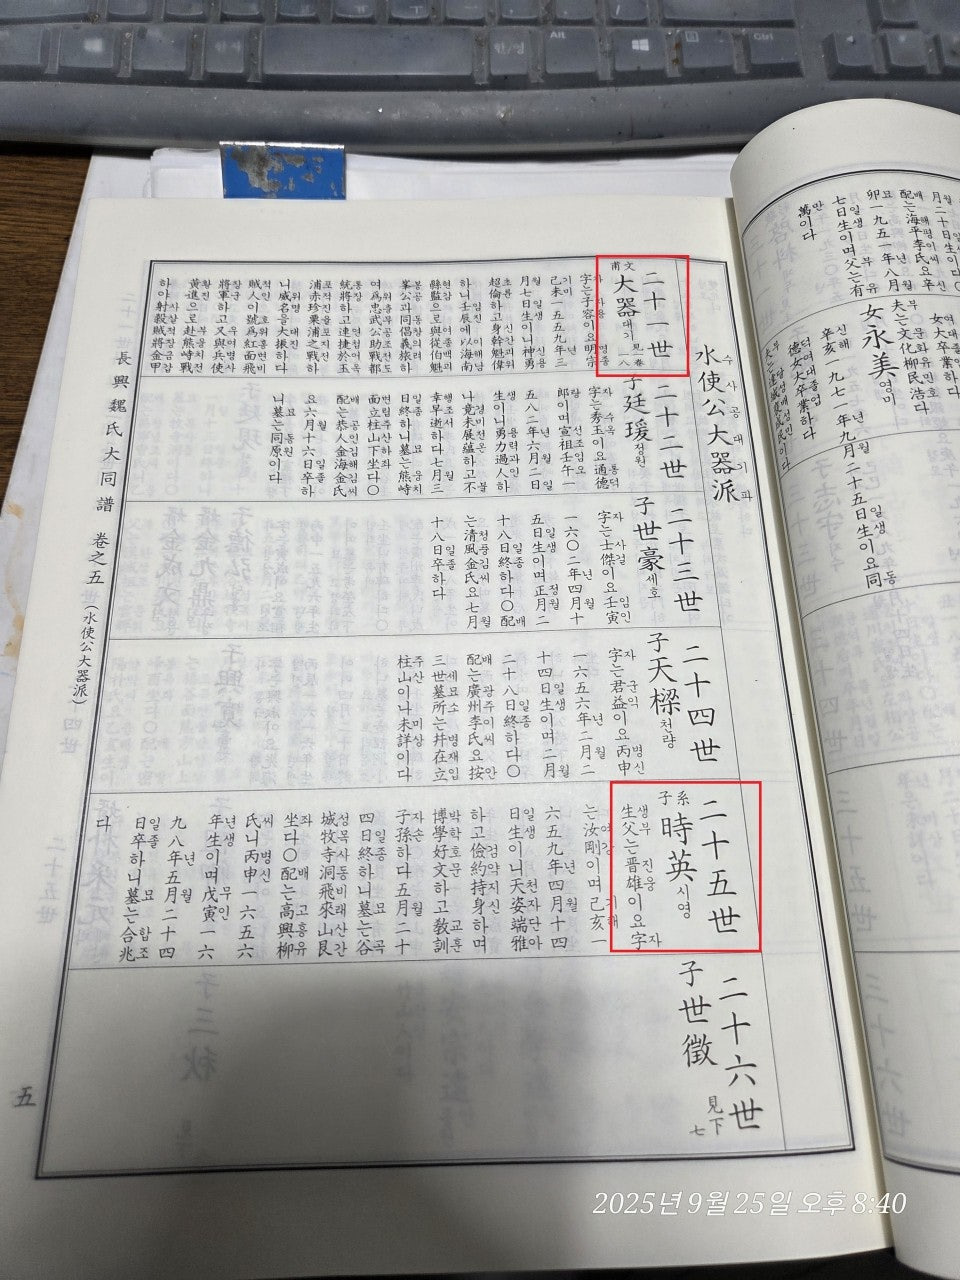 水使公大器派
수사공대기파
二十一世
文甫
大器 대기
見卷一八
字는子容이요明宗
己未一五五九年三
月七日生이니神勇
超倫하고身幹魁偉
하니壬辰에以海南
縣監으로與從伯魁
峯公과同倡義旅하
여爲忠武公助戰都
統將하고連捷於玉
浦赤珍栗浦之戰하
니威名을大振하다
賊人이號爲紅面飛
將軍하고又與兵使
黃進으로赴熊峙戰
하야射殺賊將金甲
二十二世
子廷瑗 정원
字는秀玉이요通德
郎이며宣祖壬午一
五八二年六月二日
生이니勇力過人하
나竟未展蘊하고不
幸早逝하다七月三
日終하니墓는熊峙
面立柱山下坐다○
配는恭人金海金氏
요六月十六日卒하
니墓는同原이다
二十三世
子世豪 세호
字는士傑이요壬寅
一六○二年四月十
五日生이며正月二
十八日終하다○配
는淸風金氏요七月
十八日卒하다
二十四世
子天樑 천량
字는君益이요丙申
一六五六年二月二
十四日生이며二月
二十八日終하다○
配는廣州李氏요按
三世墓所는幷在立
柱山이나未詳이다
二十五世
系子
時英 시영
生父는晋雄이요字
는汝剛이며己亥一
六五九年四月十四
日生이니天姿端雅
하고儉約持身하며
博學好文하고敎訓
子孫하다五月二十
四日終하니墓는谷
城牧寺洞飛來山艮
坐다○配는高興柳
氏니丙申一六五六
年生이며戊寅一六
九八年五月二十四
日卒하니墓는合兆
다
二十六世
子世徵
見下七
長興魏氏大同譜 卷之五(水使公大器派)
五
月二十日生이
配는海平李氏요辛
卯一九五一年八月
七日生이며父는有
萬이다
女大卒業하다
夫는文化柳民浩다
女永美 영미
辛亥一九七一年九月二十五日生이요同
德女大卒業하다
한/영
Alt
Ctrl
2025년 9월 25일 오후 8:40